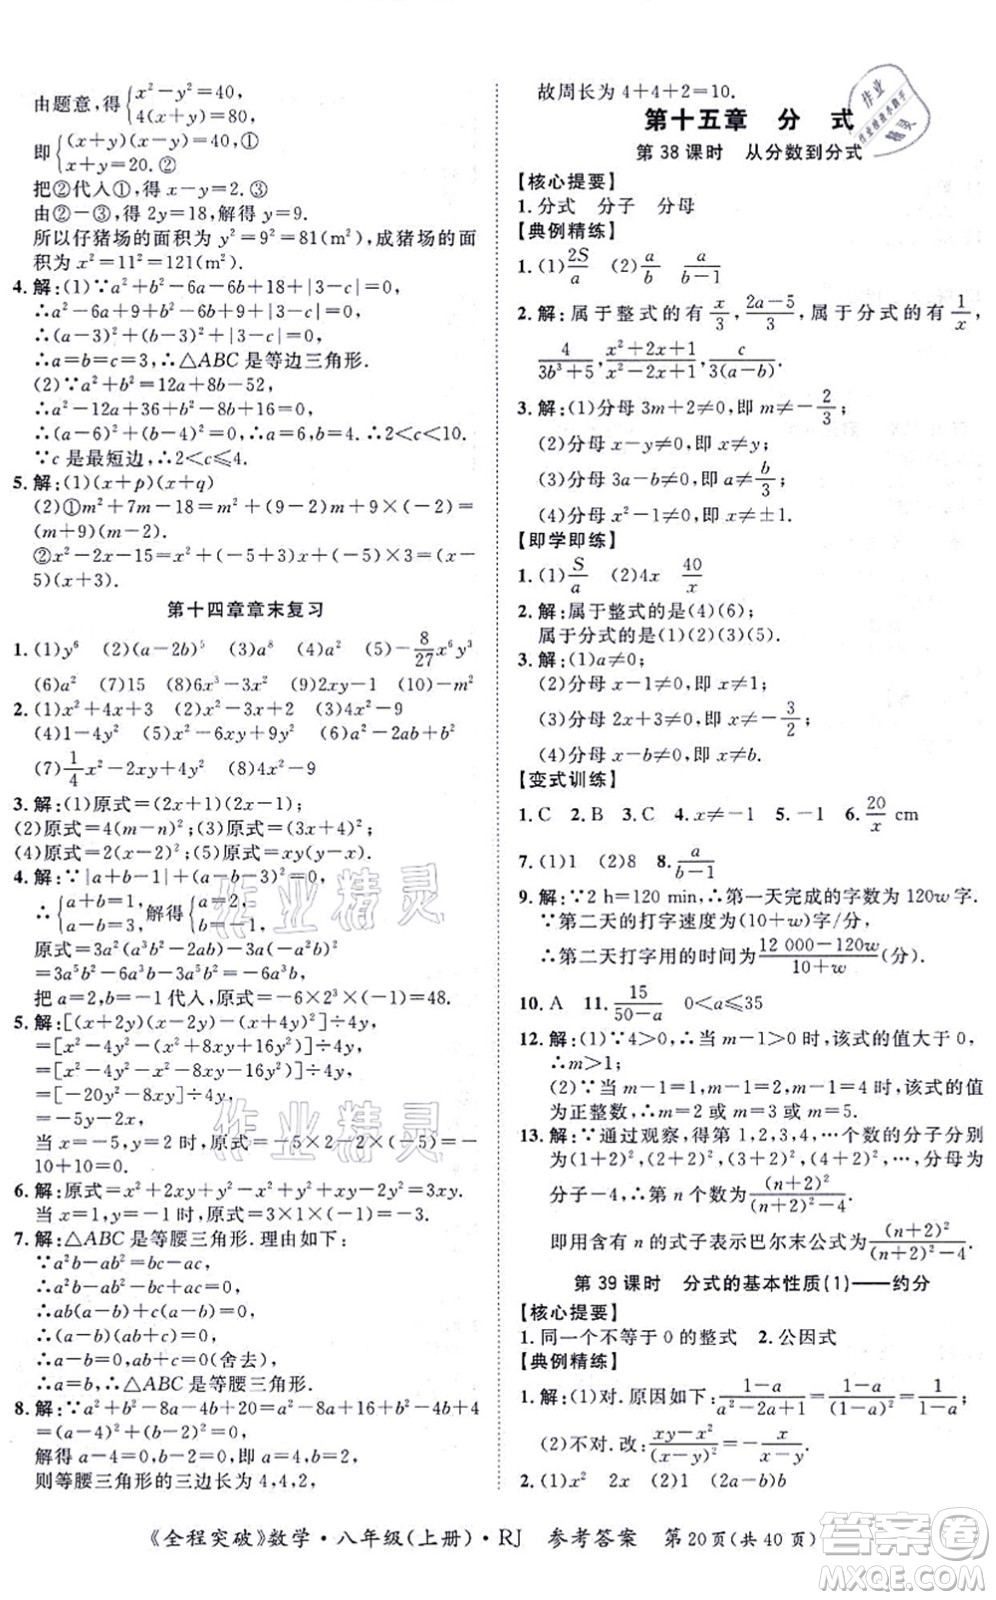 由题意，得{x²－y²＝40，
4(x＋y)＝80，
即{(x＋y)(x－y)＝40，①
x＋y＝20.②
把②代入①，得 x－y＝2.③
由②－③，得 2y＝18，解得 y＝9.
所以仔猪场的面积为 y²＝9²＝81(m²)，成猪场的面
积为 x²＝11²＝121(m²).
4.解：(1)∵a²＋b²－6a－6b＋18＋|3－c|＝0，
∴a²－6a＋9＋b²－6b＋9＋|3－c|＝0，
∴(a－3)²＋(b－3)²＋|3－c|＝0，
∴a＝b＝c＝3，∴△ABC 是等边三角形.
(2)∵a²＋b²＝12a＋8b－52，
∴a²－12a＋36＋b²－8b＋16＝0，
∴(a－6)²＋(b－4)²＝0，∴2＜c＜10.
∵c 是最短边，∴2＜c≤4.
5.解：(1)(x＋p)(x＋q)
(2)①m²＋7m－18＝m²＋(9－2)m＋9×(－2)＝
(m＋9)(m－2).
②x²－2x－15＝x²＋(3－5)x＋3×(－5)＝(x－5)
(x＋3).
第十四章章末复习
1.(1)y⁶ (2)(a－2b)⁵ (3)2a (4)a² (5)－8/27x⁶y³
(6)a² (7)15 (8)6x³－3x² (9)2xy－1 (10)－m²
2.(1)x²＋4x＋3 (2)x²－2x－3 (3)4x²－9
(4)1－4y² (5)x²－6xy＋9y² (6)a²－2ab＋b²
(7)1/4x²－2xy (8)4x²－9
3.解：(1)原式＝(2x＋1)(2x－1)；
(2)原式＝4(m－n)²；(3)原式＝(x＋2)(x－2)；
(4)原式＝2(x－2)²；(5)原式＝xy(y－1)².
4.解：∵|a＋b－1|＋(a－b－3)²＝0，
∴{a＋b＝1，
a－b＝3，解得{a＝2，
b＝－1，
原式＝3a²(a³b²－2ab)－a(－a²b)²
＝3a⁵b²－6a³b－a⁵b²＝－6a³b，
把 a＝2，b＝－1 代入，原式＝－6×2³×(－1)＝48.
5.解：[(x＋2y)(x－2y)－(x＋4y)²]÷4y，
＝[x²－4y²－(x²＋8xy＋16y²)]÷4y，
＝[x²－4y²－x²－8xy－16y²]÷4y，
＝[－20y²－8xy]÷4y，
＝－5y－2x，
当 x＝－5，y＝2 时，原式＝－5×2－2×(－5)＝
－10＋10＝0.
6.解：原式＝x²＋x²y－y²－x²＋y²＝x²y，
当 x＝3，y＝－1 时，原式＝3×1×(－1)＝－3.
7.解：△ABC 是等腰三角形.理由如下：
∵a²b－ab²＋ac－bc＝0，
∴a²b－ab²＋(ac－bc)＝0，
∴ab(a－b)＋c(a－b)＝0，
∴(a－b)(ab＋c)＝0，
∴a－b＝0，ab＋c＝0(舍去)，
∴a＝b，∴△ABC 是等腰三角形.
8.解：∵a²＋b²－8a－4b＋20＝a²－8a＋16＋b²－4b＋4
＝(a－4)²＋(b－2)²＝0，
解得 a－4＝0，b－2＝0，即 a＝4，b＝2，
则等腰三角形的三边长为 4，4，2，
故周长为 4＋4＋2＝10.
第十五章 分 式
第 38 课时 从分数到分式
【核心提要】
1.分式 分子 分母
【典例精练】
1.(1)2S/a (2)a/b a/(b－1)
2.解：属于整式的有 x/3，(2a－5)/3，属于分式的有 1/x，
4/(3b³＋5)，(x²＋2x＋1)/(x²－2x＋1)，c/(3(a－b)).
3.解：(1)分母 3m＋2≠0，即 m≠－2/3；
(2)分母 x－y≠0，即 x≠y；
(3)分母 3a－b≠0，即 a≠b/3；
(4)分母 x²－1≠0，即 x≠±1.
【即学即练】
1.(1)S/a (2)4x 40/x
2.解：属于整式的是(4)(6)；
属于分式的是(1)(2)(3)(5).
3.解：(1)a≠0；
(2)分母 x－1≠0，即 x≠1；
(3)分母 2x＋3≠0，即 x≠－3/2；
(4)分母 x－y≠0，即 x≠y.
【变式训练】
1.C 2.B 3.D 4.x≠－1 5.－1 6.20/x cm
7.(1)1 (2)8 8.a/(b－1)
9.解：∵2 h＝120 min，∴第一天完成的字数为 120w 字.
∵第二天的打字速度为(10＋w)字/分，
∴第二天打字用的时间为(12 000－120w)/(10＋w)(分).
10.A 11.15/(50－a) 0＜a≤35
12.解：(1)∵4＞0，∴当 m－1＞0 时，该式的值大于 0，
∴m＞1；
(2)∵当 m－1＝1 或 2 或 4 时，该式的值
为正整数，∴m＝2 或 3 或 5.
13.解：∵通过观察，得第 1，2，3，4，…个数的分子分别
为(1＋2)²，(2＋2)²，(3＋2)²，(4＋2)²，…，分母为
分子－4，∴第 n 个数为(n＋2)²/((n＋2)²－4)，
即用含有 n 的式子表示巴尔末公式为(n＋2)²/((n＋2)²－4).
第 39 课时 分式的基本性质(1)——约分
【核心提要】
1.同一个不等于 0 的整式 2.公因式
【典例精练】
1.解：(1)对.原因如下：(1－a)/(a²－2a＋1)＝(1－a)/(1－a)²＝1/(1－a)；
(2)不对.改：(xy－x²)/(x－y)²＝－x/(x－y).
2.(1)x² 2x (2)1 (2－x)
《全程突破》数学·八年级(上册)·RJ 参考答案 第20页(共 40 页)
作业精灵
作业精灵
MXQE.COM